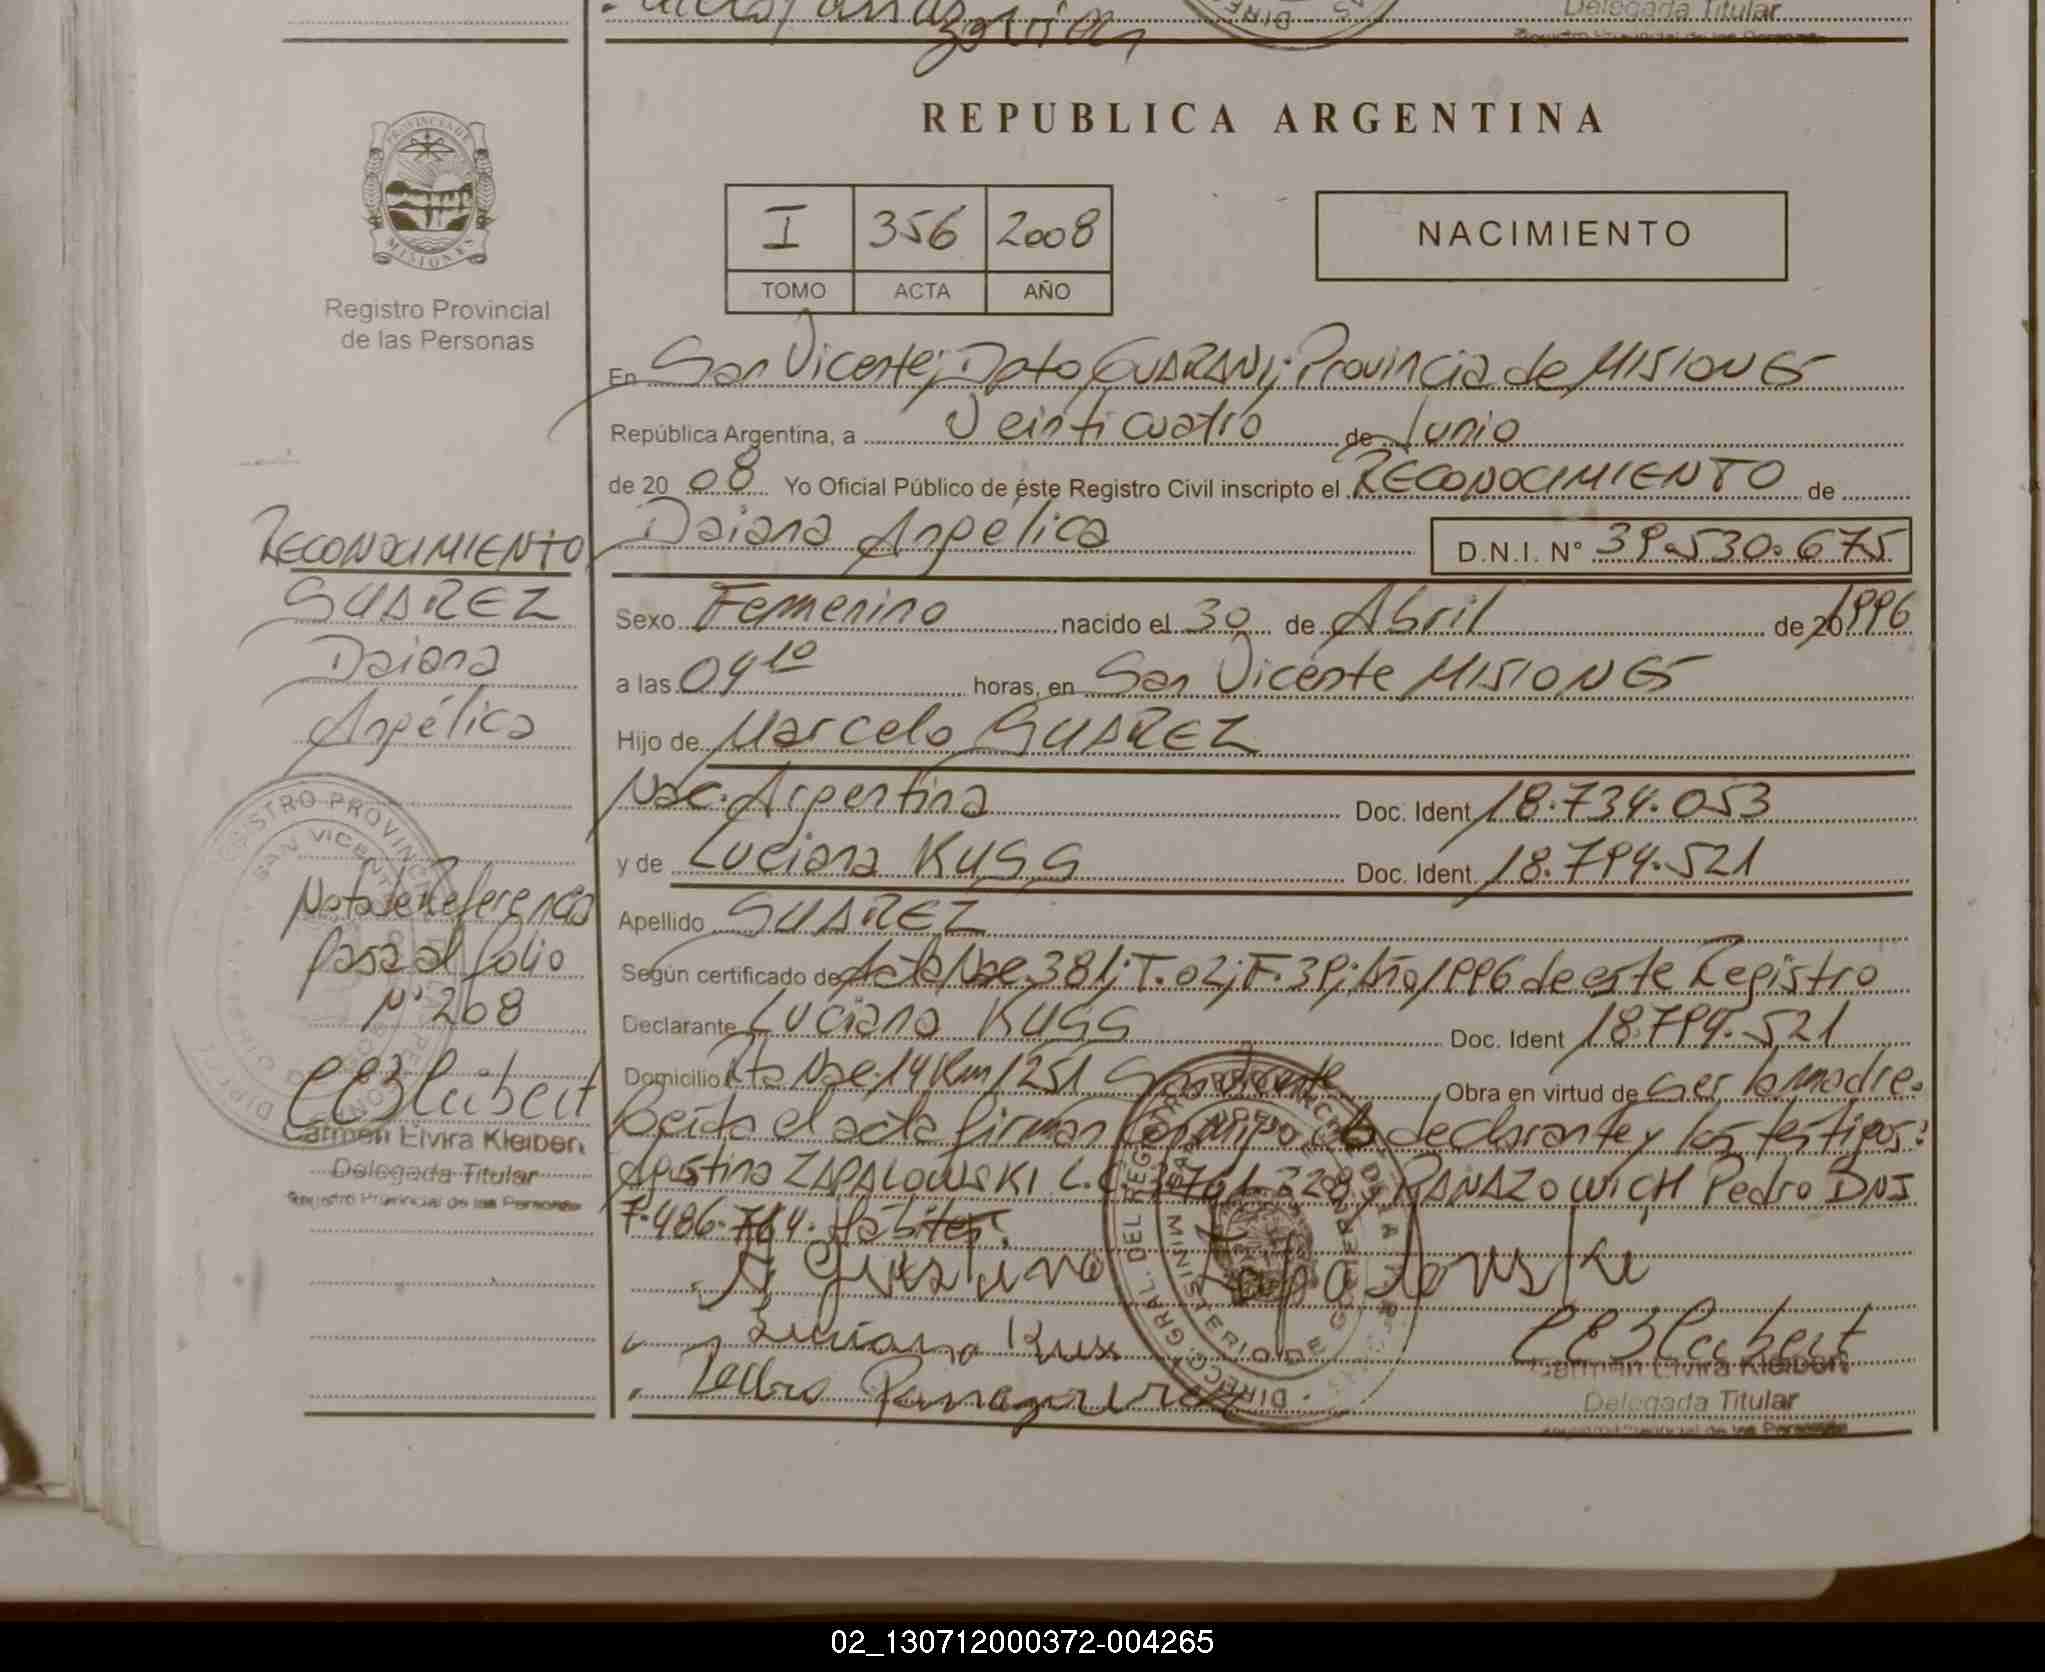 Delegada Titular
REPUBLICA ARGENTINA
PROVINCIA DE
MISIONES
Registro Provincial
de las Personas
I 356 2008
TOMO ACTA AÑO
NACIMIENTO
En San Vicente; Dpto GUARANI; Provincia de MISIONES
República Argentina, a Veinticuatro de Junio
de 2008 Yo Oficial Público de éste Registro Civil inscripto el RECONOCIMIENTO de
Daiana Angélica D.N.I. N° 39.530.675
Sexo Femenino nacido el 30 de Abril de 20 1996
a las 04 10 horas, en San Vicente MISIONES
Hijo de Marcelo SUAREZ
Nac. Argentina Doc. Ident 18.734.053
y de Luciana KUSS Doc. Ident. 18.794.521
Apellido SUAREZ
Según certificado de Acta Nac. 381; T. 02; F. 39; Año 1996 de este Registro
Declarante Luciana KUSS Doc. Ident 18.794.521
Domicilio Rta Nac. 14 Km 1251 San Vicente Obra en virtud de ser la madre.
Leída el acta firman conmigo la declarante y los testigos:
Agustina ZAPALOWSKI L.C. y PANAZOWICH Pedro DNI
7.486.764. Hábiles.
Agustina Zapalowski
Luciana Kuss
Pedro
Carmen Elvira Kleibert
Delegada Titular
Registro Provincial de las Personas
RECONOCIMIENTO
SUAREZ
Daiana
Angélica
REGISTRO PROVINCIAL
SAN VICENTE
Nota de Referencia
pasa al folio
N° 268
Carmen Elvira Kleibert
Delegada Titular
Registro Provincial de las Personas
02_130712000372-004265